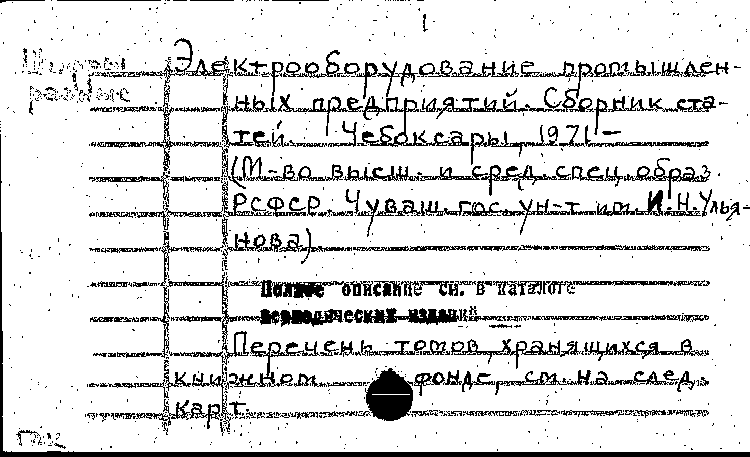 1
Шифры
разные
Электрооборудование промышлен-
ных предприятий. Сборник ста-
тей. Чебоксары, 1971 –
(М-во высш. и сред. спец. образ.
РСФСР. Чуваш. гос. ун-т им. И.Н.Улья-
нова).
Полное описание см. в каталоге
периодических изданий
Перечень томов, хранящихся в
книжном фонде, см. на след.
карт.